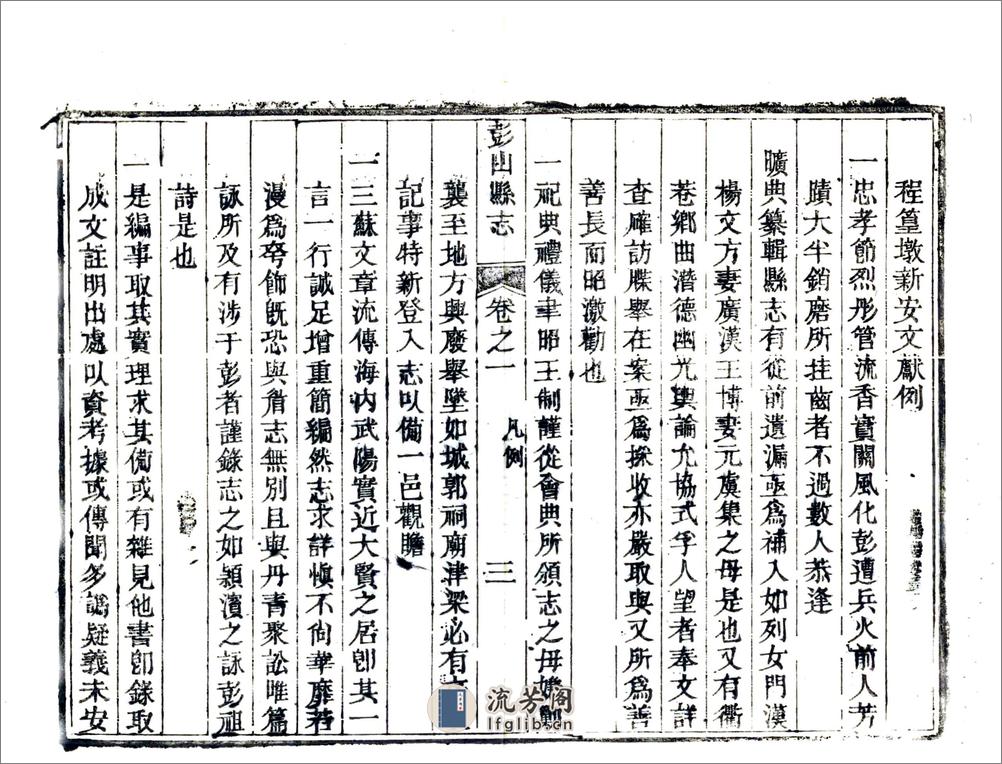 程篁墩新安文獻例
一忠孝節烈彤管流香實關風化彭遭兵火前人芳
蹟大半銷磨所挂齒者不過數人恭逢
曠典纂輯縣志有從前遺漏亟為補入如列女門漢
楊文方妻廣漢王博妻元虞集之母是也又有衢
巷鄉曲潛德幽光輿論允協式孚人望者奉文詳
查確訪牒舉在案亟為採收亦嚴取與又所為善
善長而昭激勸也
一祀典禮儀聿昭王制謹從會典所頒志之毋嫌
襲至地方興廢舉墜如城郭祠廟津梁必有
記事特新登入志以備一邑觀瞻
一三蘇文章流傳海內武陽實近大賢之居卽其一
言一行誠足增重簡編然志求詳慎不尙華靡若
漫爲夸飾旣恐與眉志無別且與丹青聚訟唯篇
詠所及有涉于彭者謹錄志之如潁濱之詠彭祖
詩是也
一是編事取其實理求其備或有雜見他書卽錄取
成文註明出處以資考據或傳聞多譌疑義未安
彭山縣志
卷之一
凡例
三
流芳阁
lfglib.com